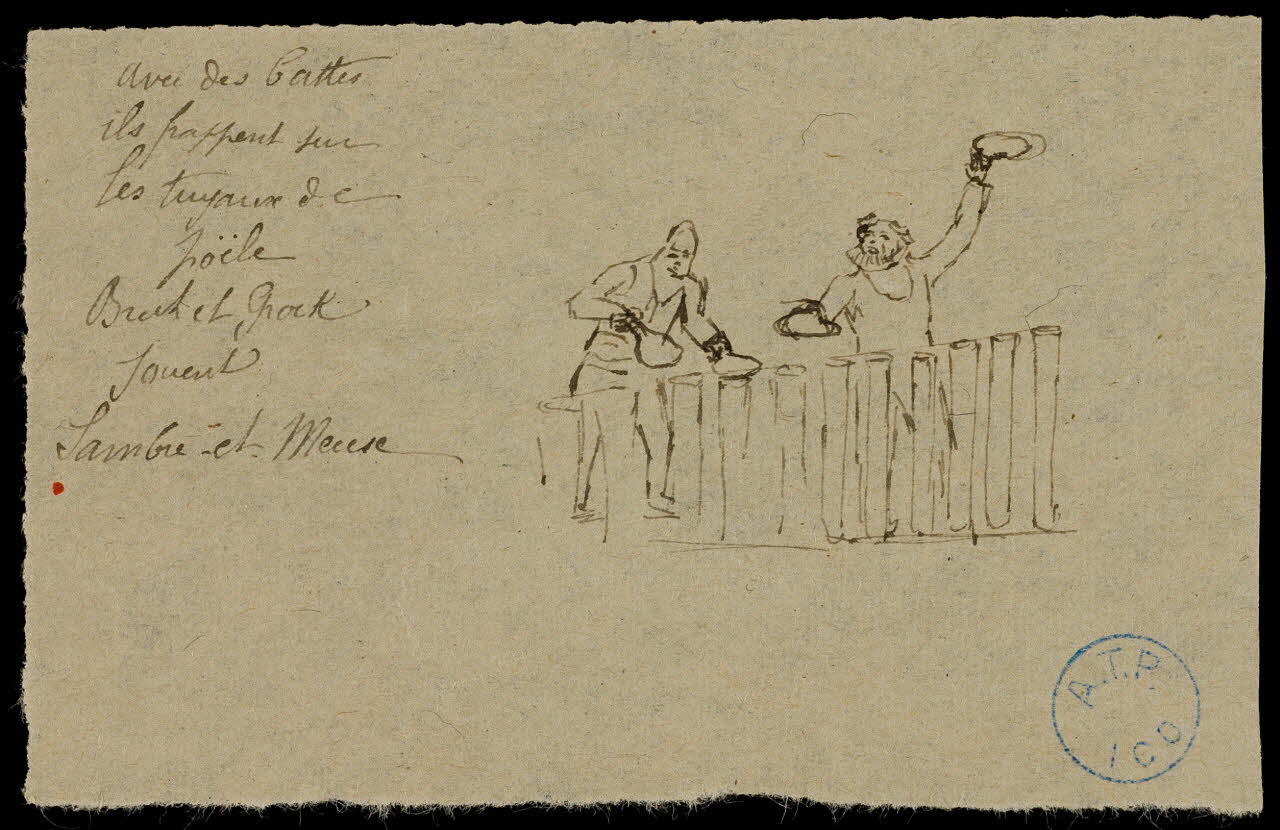 avec des battes
ils frappent sur
les tuyaux de
pöële
Brick et Grock
jouent
Sambre-et-Meuse
A.T.P.
ICO